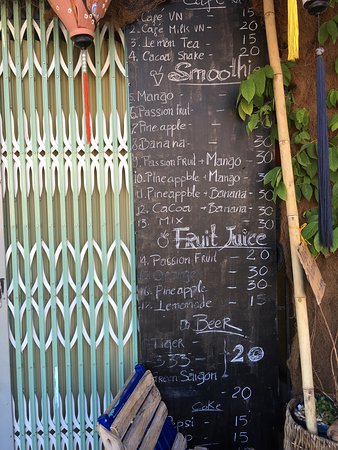 Cafe
1. Cafe VN - 15
2. Cafe Milk VN - 20
3. Lemon Tea - 15
4. Cacoa Shake - 20
Smoothi
5. Mango -
6. Passion fruit -
7. Pineapple -
8. Banana - 30
9. Passion Fruit + Mango - 30
10. Pineapple + Mango - 30
11. Pineapple + Banana - 30
12. CaCoa + Banana - 30
13. Mix - 30
Fruit Juice
14. Passion Fruit - 20
Orange - 30
16. Pineapple - 30
Lemonade - 15
Beer
Tiger -
333 - 20
Green Saigon
- 20
Coke
Pepsi - 15
15